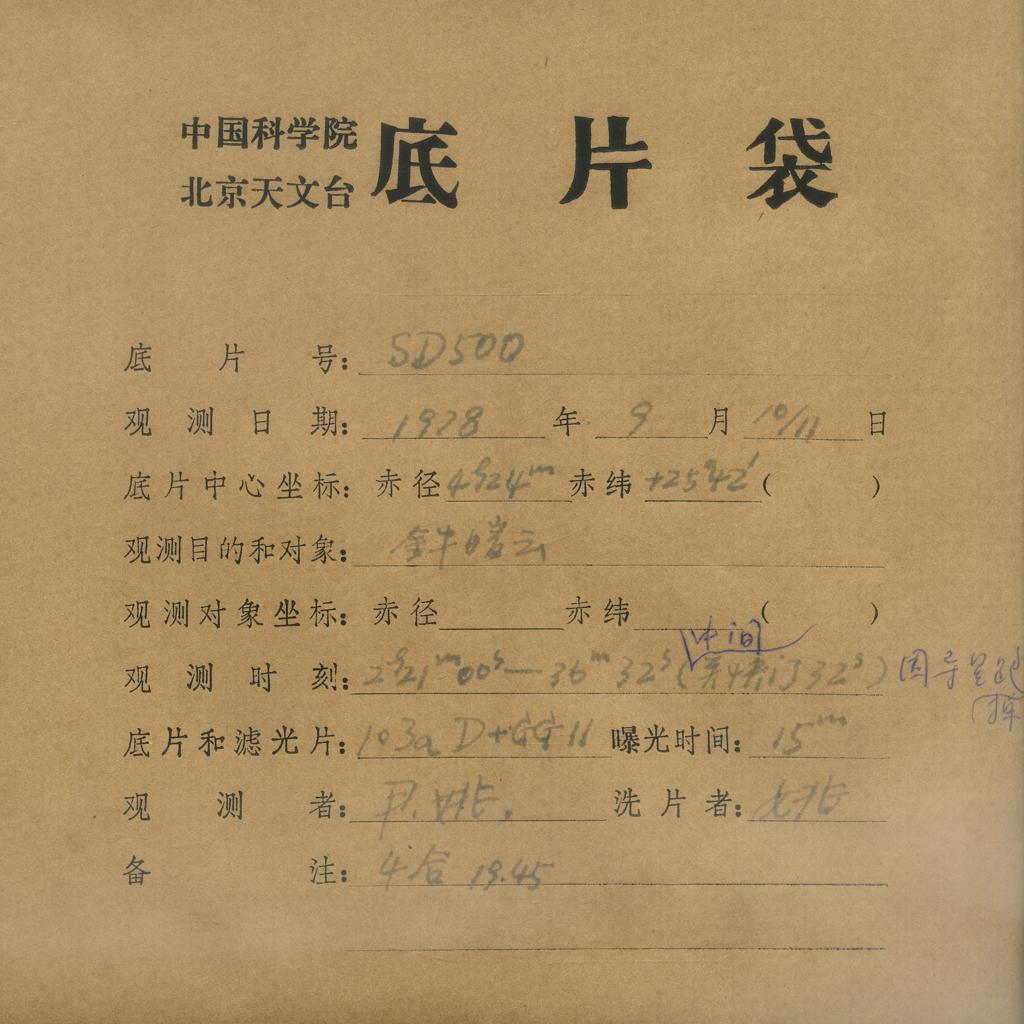 中国科学院
北京天文台
底片袋
底片号: SD500
观测日期: 1978 年 9 月 10/11 日
底片中心坐标: 赤径 4h24m 赤纬 +25°42′ ( )
观测目的和对象: 金牛暗云
观测对象坐标: 赤径 赤纬 ( )
中间
观测时刻: 2h21m00s — 36m 32s ( 32s) 因导星跑
掉
底片和滤光片: 103a D+GG11 曝光时间: 15m
观测者: 尹.姚. 洗片者: 姚
备注: 4合 19.45